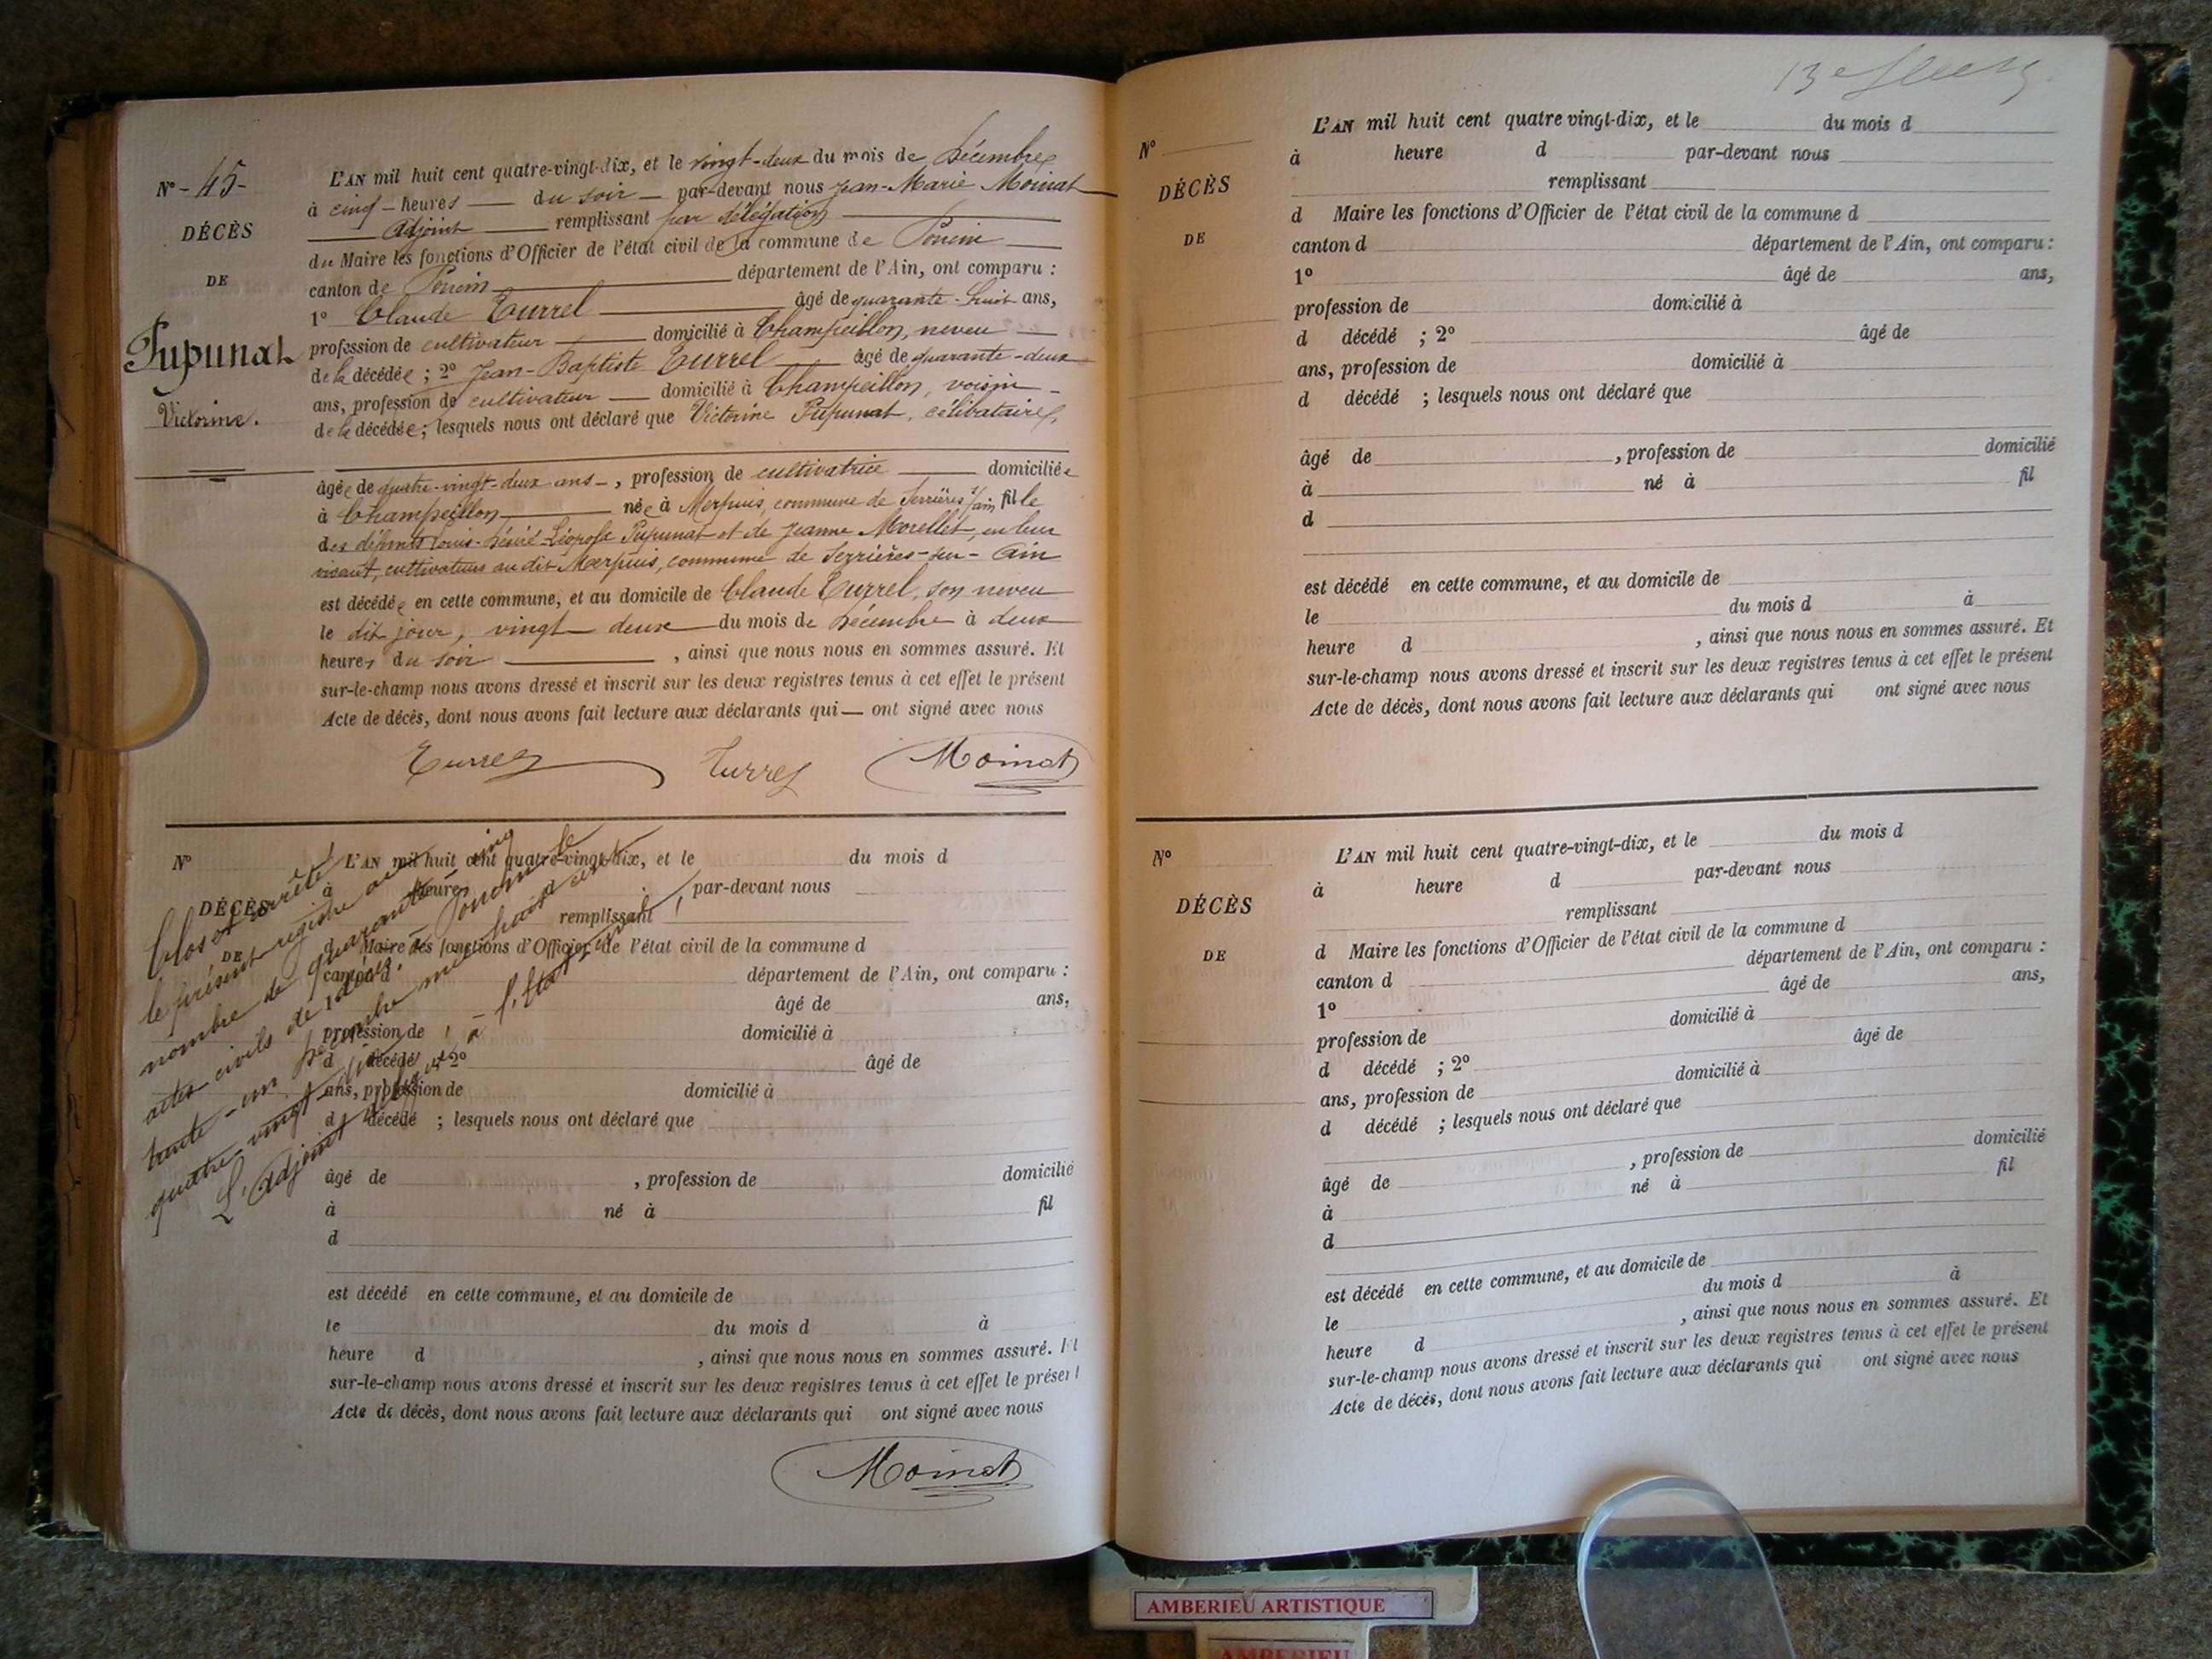 Nº - 45 -
DÉCÈS
DE
Pupunat
Victorine.
L'AN mil huit cent quatre-vingt-dix, et le vingt-deux du mois de Décembre
à cinq - heures — du soir — par-devant nous Jean-Marie Moinat
Adjoint — remplissant par délégation
du Maire les fonctions d'Officier de l'état civil de la commune de Poncin
canton de Poncin département de l'Ain, ont comparu :
1º Claude Turrel âgé de quarante-huit ans,
profession de cultivateur domicilié à Champeillon, neveu
de la décédée ; 2º Jean-Baptiste Turrel âgé de quarante-deux
ans, profession de cultivateur domicilié à Champeillon, voisin
de la décédée ; lesquels nous ont déclaré que Victorine Pupunat, célibataire,
âgée de quatre-vingt-deux ans -, profession de cultivatrice domiciliée
à Champeillon née à Merpuis, commune de Serrières s/ain fille
des défunts Louis-Désiré-Léopold Pupunat et de Jeanne Morellet, en leur
vivant, cultivateurs au dit Merpuis, commune de Serrières-sur-Ain
est décédée en cette commune, et au domicile de Claude Turrel, son neveu
le dit jour, vingt deux du mois de Décembre à deux
heures du soir , ainsi que nous nous en sommes assuré. Et
sur-le-champ nous avons dressé et inscrit sur les deux registres tenus à cet effet le présent
Acte de décès, dont nous avons fait lecture aux déclarants qui — ont signé avec nous
Turrel Turrel Moinat
Nº
DÉCÈS
DE
L'AN mil huit cent quatre-vingt-dix, et le du mois d
à heure d par-devant nous
remplissant
d Maire les fonctions d'Officier de l'état civil de la commune d
canton d département de l'Ain, ont comparu :
âgé de ans,
profession de domicilié à
d décédé ; 2º âgé de
ans, profession de domicilié à
d décédé ; lesquels nous ont déclaré que
âgé de , profession de domicilié
à né à fil
d
est décédé en cette commune, et au domicile de
le du mois d à
heure d , ainsi que nous nous en sommes assuré. Et
sur-le-champ nous avons dressé et inscrit sur les deux registres tenus à cet effet le présent
Acte de décès, dont nous avons fait lecture aux déclarants qui ont signé avec nous
Clos et arrêté
le présent registre au
nombre de quarante-cinq
actes civils de décès. à Poncin le
trente-un Décembre mil huit cent
quatre-vingt-dix
L'Adjoint délégué à l'État civil,
Moinat
13e
Nº
DÉCÈS
DE
L'AN mil huit cent quatre vingt-dix, et le du mois d
à heure d par-devant nous
remplissant
d Maire les fonctions d'Officier de l'état civil de la commune d
canton d département de l'Ain, ont comparu :
1º âgé de ans,
profession de domicilié à
d décédé ; 2º âgé de
ans, profession de domicilié à
d décédé ; lesquels nous ont déclaré que
âgé de , profession de domicilié
à né à fil
d
est décédé en cette commune, et au domicile de
le du mois d à
heure d , ainsi que nous nous en sommes assuré. Et
sur-le-champ nous avons dressé et inscrit sur les deux registres tenus à cet effet le présent
Acte de décès, dont nous avons fait lecture aux déclarants qui ont signé avec nous
Nº
DÉCÈS
DE
L'AN mil huit cent quatre-vingt-dix, et le du mois d
à heure d par-devant nous
remplissant
d Maire les fonctions d'Officier de l'état civil de la commune d
canton d département de l'Ain, ont comparu :
1º âgé de ans,
profession de domicilié à
d décédé ; 2º âgé de
ans, profession de domicilié à
d décédé ; lesquels nous ont déclaré que
âgé de , profession de domicilié
à né à fil
d
est décédé en cette commune, et au domicile de
le du mois d à
heure d , ainsi que nous nous en sommes assuré. Et
sur-le-champ nous avons dressé et inscrit sur les deux registres tenus à cet effet le présent
Acte de décès, dont nous avons fait lecture aux déclarants qui ont signé avec nous
AMBERIEU ARTISTIQUE
AMBERIEU